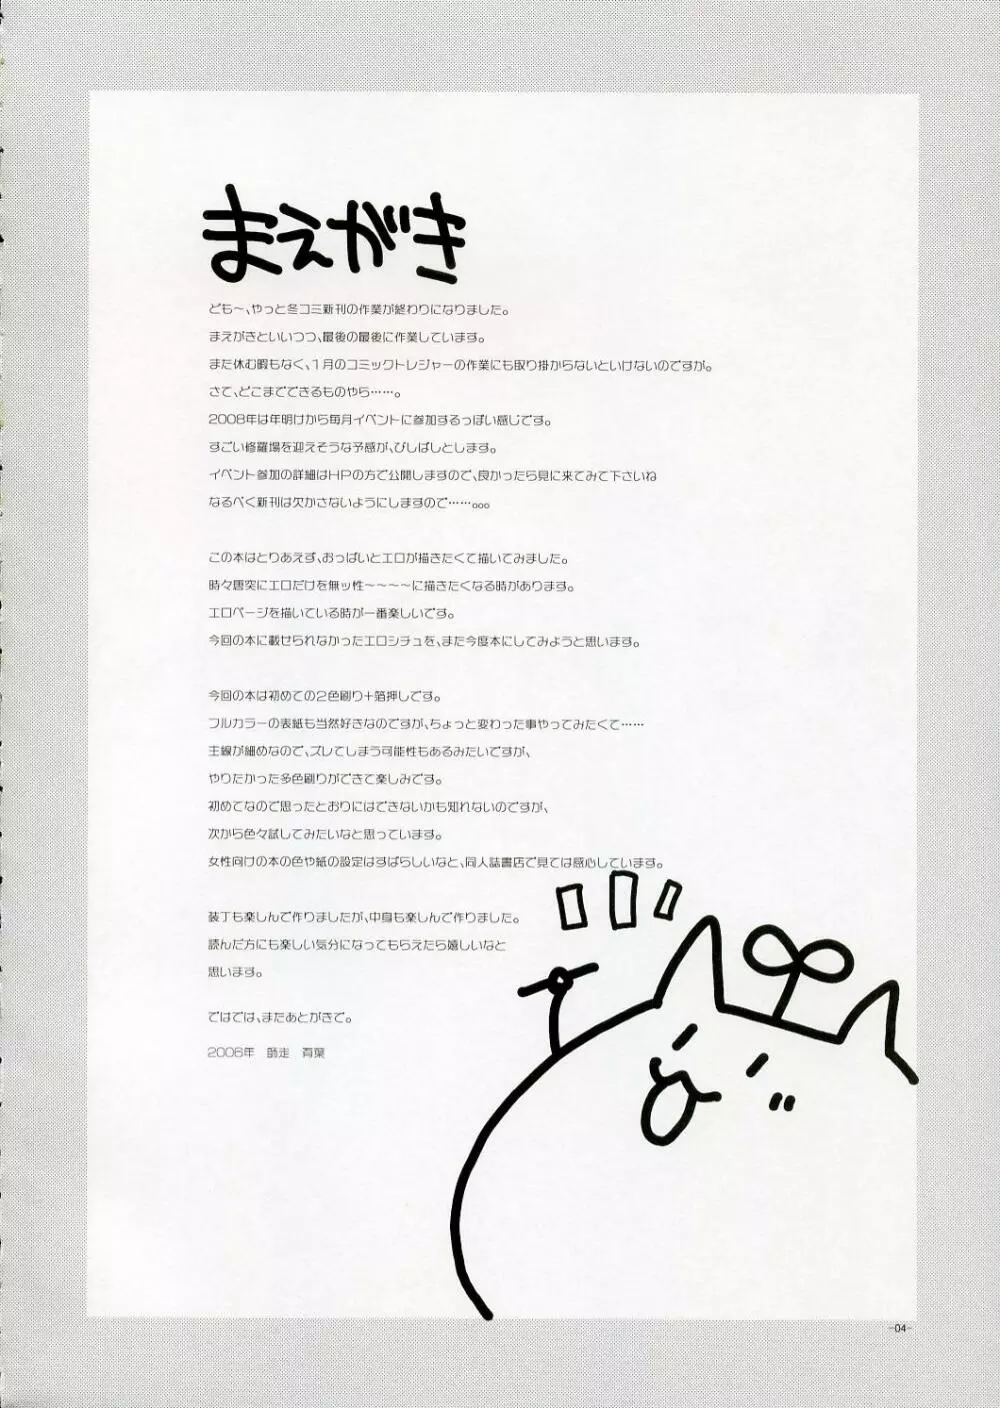 まえがき
ども～、やっと冬コミ新刊の作業が終わりになりました。
まえがきといいつつ、最後の最後に作業しています。
まだ休む暇もなく、1月のコミックトレジャーの作業にも取り掛からないといけないのですが。
さて、どこまでできるものやら……。
2008年は年明けから毎月イベントに参加するっぽい感じです。
すごい修羅場を迎えそうな予感が、びしばしとします。
イベント参加の詳細はHPの方で公開しますので、良かったら見に来てみて下さいね
なるべく新刊は欠かさないようにしますので……。。。
この本はとりあえず、おっぱいとエロが描きたくて描いてみました。
時々唐突にエロだけを無ッ性～～～～に描きたくなる時があります。
エロページを描いている時が一番楽しいです。
今回の本に載せられなかったエロシチュを、また今度本にしてみようと思います。
今回の本は初めての2色刷り＋箔押しです。
フルカラーの表紙も当然好きなのですが、ちょっと変わった事やってみたくて……
主線が細めなので、ズレてしまう可能性もあるみたいですが、
やりたかった多色刷りができて楽しみです。
初めてなので思ったとおりにはできないかも知れないのですが、
次から色々試してみたいなと思っています。
女性向けの本の色や紙の設定はすばらしいなと、同人誌書店で見ては感心しています。
装丁も楽しんで作りましたが、中身も楽しんで作りました。
読んだ方にも楽しい気分になってもらえたら嬉しいなと
思います。
ではでは、またあとがきで。
2006年　師走　青葉
-04-